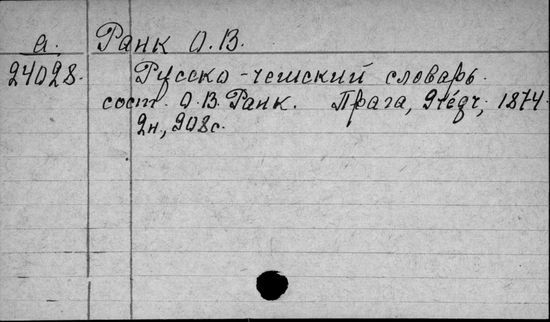 а. Ранк О.В.
24028. Русско-чешский словарь.
сост. О.В. Ранк. Прага, Grégr, 1874.
2н, 908с.